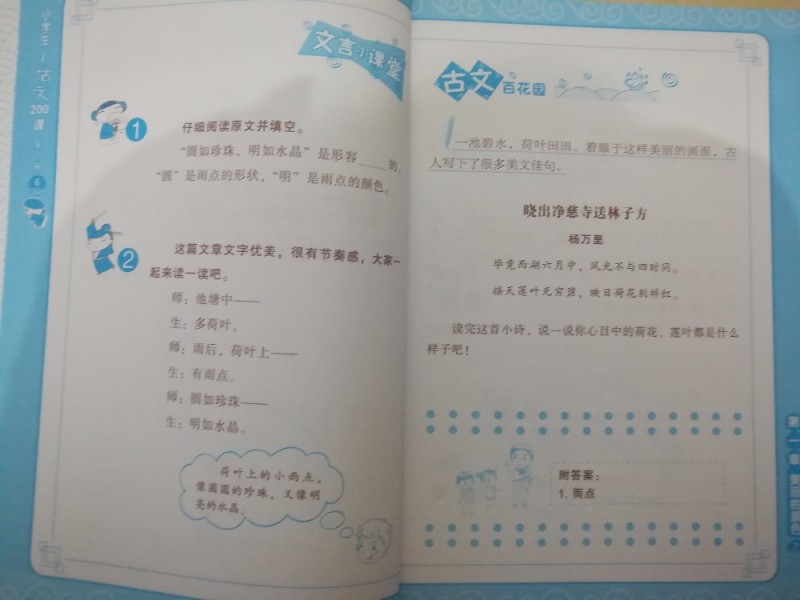 小学生小古文200课
6
文言小课堂
1
仔细阅读原文并填空。
“圆如珍珠，明如水晶”是形容____的。
“圆”是雨点的形状，“明”是雨点的颜色。
2
这篇文章文字优美，很有节奏感，大家一
起来读一读吧。
师：池塘中——
生：多荷叶。
师：雨后，荷叶上——
生：有雨点。
师：圆如珍珠——
生：明如水晶。
荷叶上的小雨点，
像圆圆的珍珠，又像明
亮的水晶。
古文百花园
一池碧水，荷叶田田。着眼于这样美丽的画面，古
人写下了很多美文佳句。
晓出净慈寺送林子方
杨万里
毕竟西湖六月中，风光不与四时同。
接天莲叶无穷碧，映日荷花别样红。
读完这首小诗，说一说你心目中的荷花、莲叶都是什么
样子吧！
附答案：
1. 雨点
第一章 美丽的景色
7